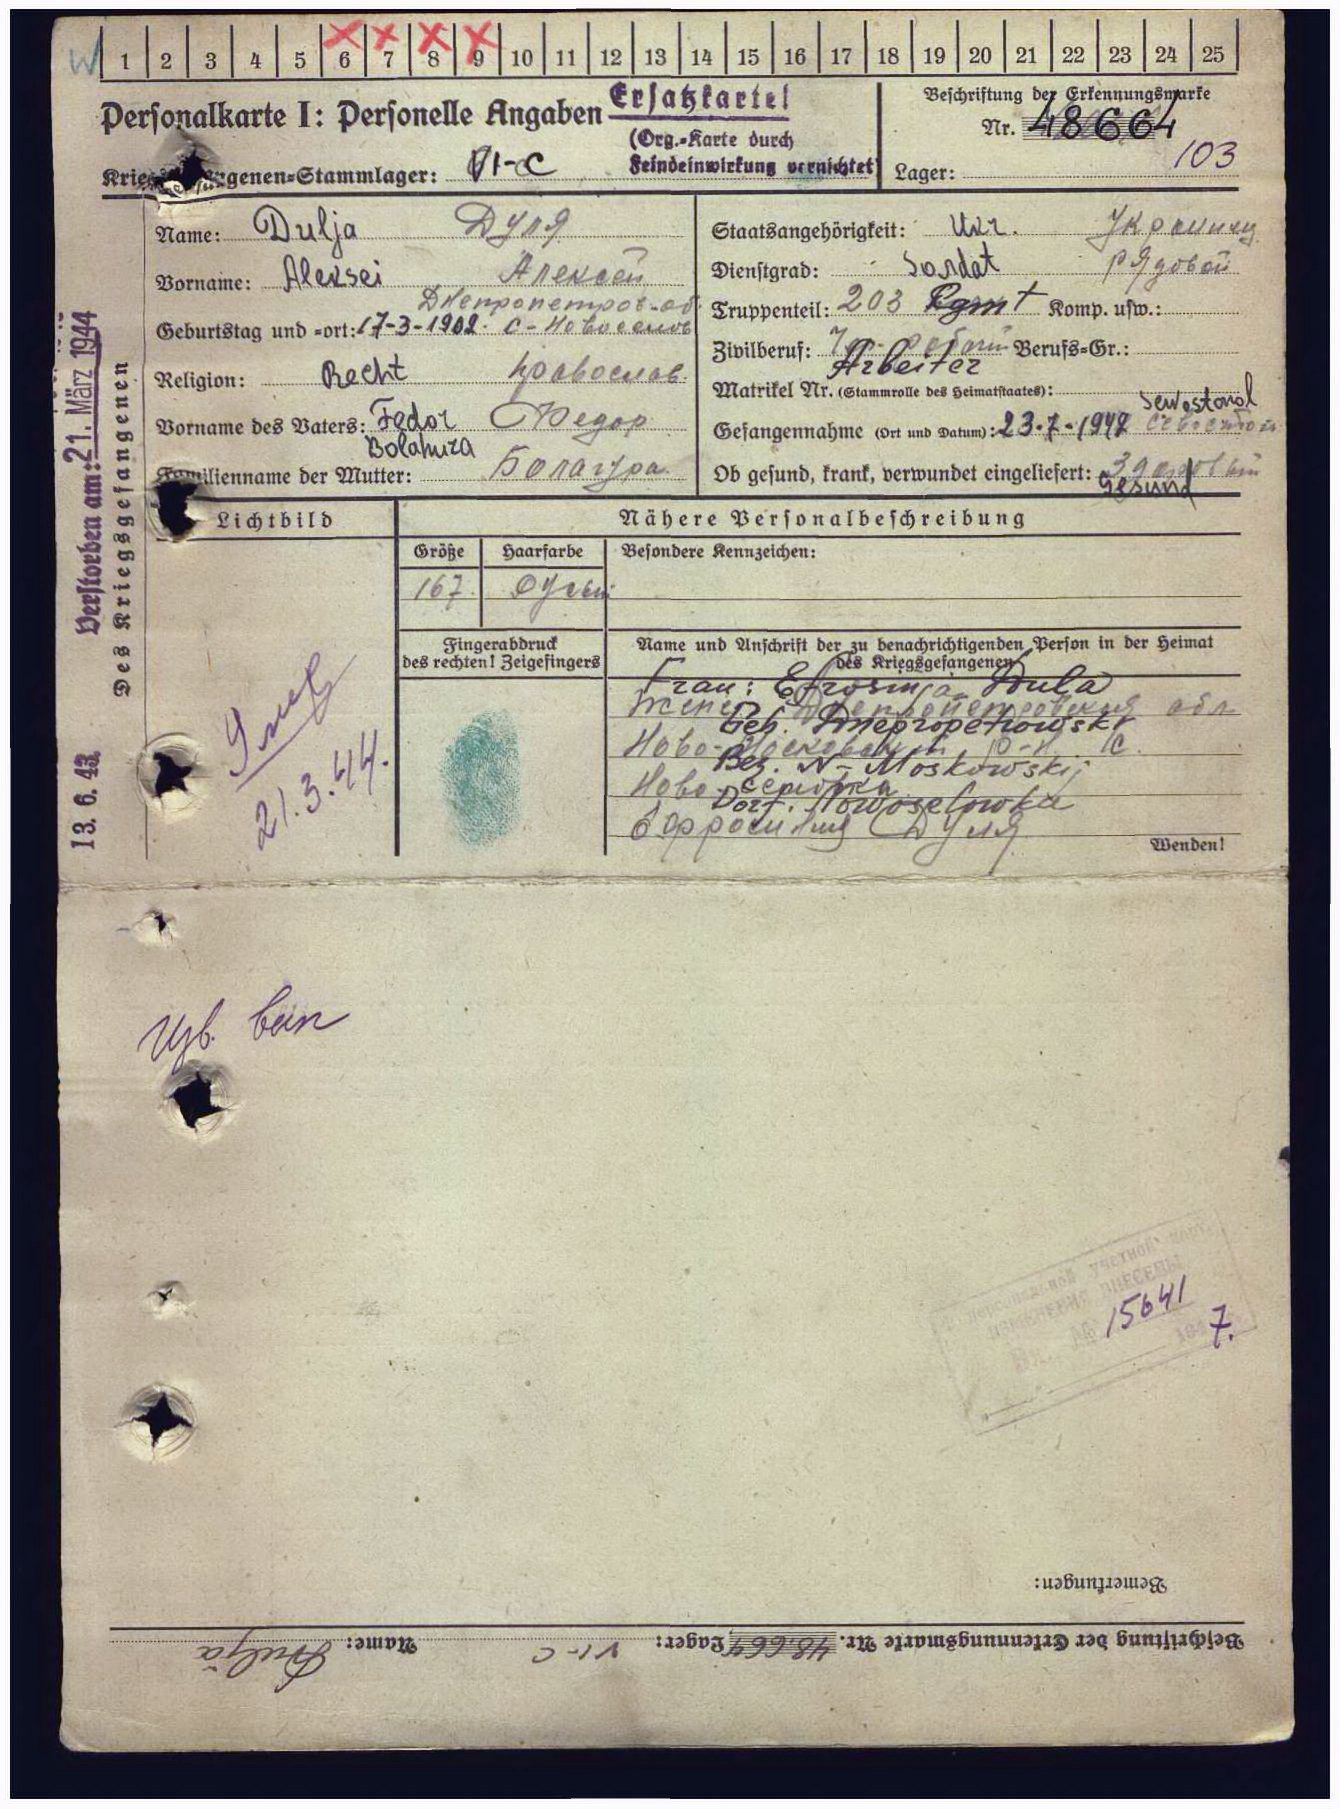 W 1 2 3 4 5 6 7 8 9 10 11 12 13 14 15 16 17 18 19 20 21 22 23 24 25
Personalkarte I: Personelle Angaben
Ersatzkarte!
(Org.-Karte durch
Feindeinwirkung vernichtet)
Beschriftung der Erkennungsmarke
Nr. 48664
Lager: 103
genen-Stammlager: VI-C
Name: Dulja Дуля
Vorname: Aleksei Алексей
Днепропетров-об.
Geburtstag und -ort: 17-3-1902. с-
Religion: Recht православ.
Vorname des Vaters: Fedor Федор
Bolahura
Familienname der Mutter: Болагура
Staatsangehörigkeit: Ukr. Украинец
Dienstgrad: Soldat рядовой
Truppenteil: 203 Rgmt Komp. usw.:
Zivilberuf: Berufs-Gr.:
Arbeiter
Matrikel Nr. (Stammrolle des Heimatstaates):
Sewastopol
Gefangennahme (Ort und Datum): 23-7-1942
Ob gesund, krank, verwundet eingeliefert:
Gesund
Verstorben am: 21. März 1944
Des Kriegsgefangenen
13. 6. 43.
Lichtbild
Nähere Personalbeschreibung
Größe Haarfarbe Besondere Kennzeichen:
167
Fingerabdruck
des rechten! Zeigefingers
Name und Anschrift der zu benachrichtigenden Person in der Heimat
des Kriegsgefangenen
Frau: Efrosinja Dula
Geb. Dnepropetrowskr
Bez. N-Moskowskij
Dorf. Nowoselowka
Дуля
Wenden!
Умер
21.3.44.
15641
7.
Bemerkungen:
Beschriftung der Erkennungsmarke Nr. 48.664 Lager: VI-C Name: Dulja